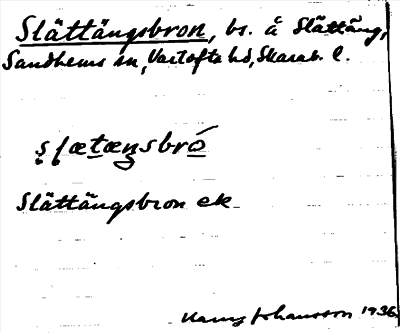 Slättängsbron, bs. å Slättäng,
Sandhems sn, Vartofta hd, Skarab. l.
Slättängsbron ek.
Harry Johansson 1936.